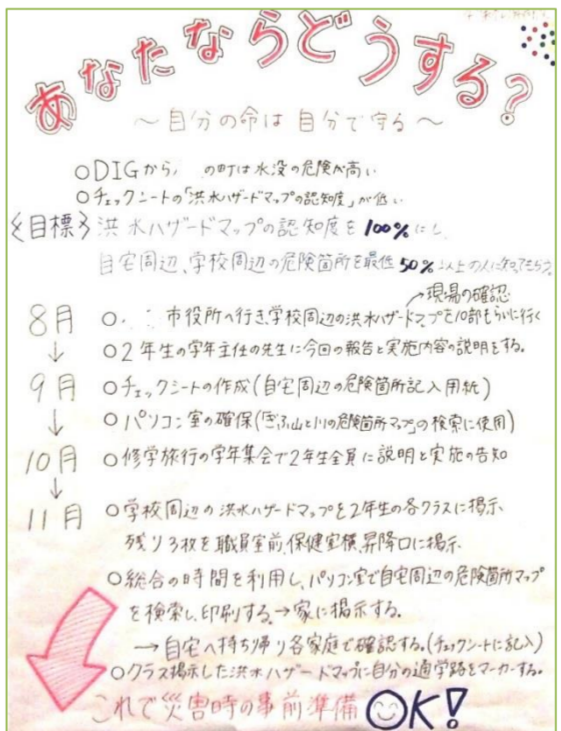 あなたならどうする?
～自分の命は自分で守る～
○DIGから の町は水没の危険が高い
○チェックシートの「洪水ハザードマップの認知度」が低い
〈目標〉洪水ハザードマップの認知度を100%にし、
自宅周辺、学校周辺の危険箇所を最低50%以上の人に知ってもらう。
現場の確認
8月 ○ 市役所へ行き学校周辺の洪水ハザードマップを10部もらいに行く
↓ ○2年生の学年主任の先生に今回の報告と実施内容の説明をする。
9月 ○チェックシートの作成(自宅周辺の危険箇所記入用紙)
↓ ○パソコン室の確保(「ぎふ山と川の危険箇所マップ」の検索に使用)
10月 ○修学旅行の学年集会で2年生全員に説明と実施の告知
↓
11月 ○学校周辺の洪水ハザードマップを2年生の各クラスに掲示、
残り3枚を職員室前、保健室横、昇降口に掲示、
○総合の時間を利用し、パソコン室で自宅周辺の危険箇所マップ
を検索し、印刷する。→家に掲示する。
→自宅へ持ち帰り各家庭で確認する。(チェックシートに記入)
○クラス掲示した洪水ハザードマップに自分の通学路をマーカーする。
これで災害時の事前準備OK!